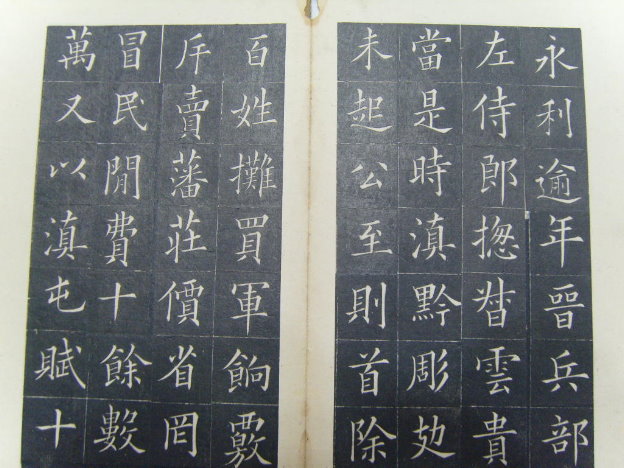 永利逾年晉兵部
左侍郎揔督雲貴
當是時滇黔彫攰
未起公至則首除
百姓攤買軍餉覈
斥賣藩莊價省罔
冒民閒費十餘數
萬又以滇屯賦十